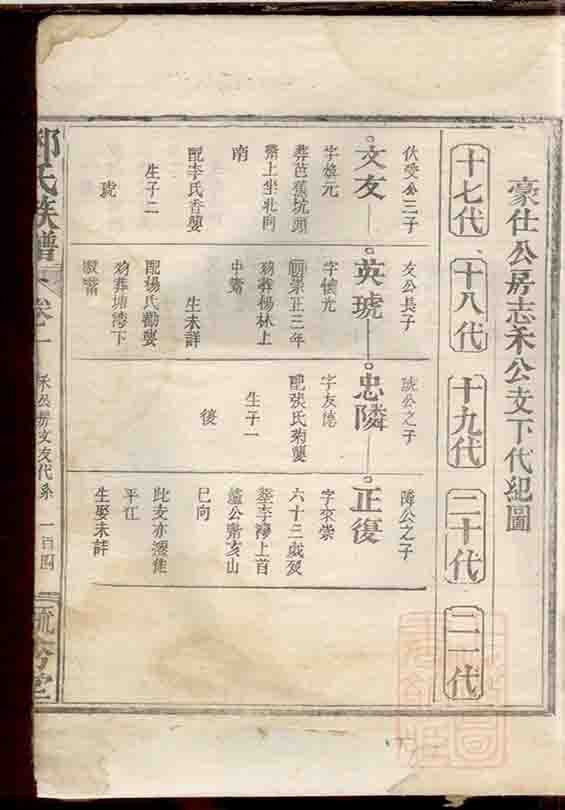 豪仕公房志禾公支下代紀圖
十七代
十八代
十九代
二十代
二一代
伏受公三子
文友
字煥元
葬芭蕉坑頭
嘴上坐北向
南
配李氏香嬰
生子二
琥
友公長子
英琥
字懷光
崇正三年
歿葬楊林上
中嘴
生未詳
配楊氏勸嬰
歿葬塘灣下
嘴
琥公之子
忠隣
字友德
配張氏菊嬰
生子一
復
隣公之子
正復
字來崇
六十三歲歿
葬李灣上首
公嘴亥山
巳向
此支亦遷焦
平江
生娶未詳
氏族譜
卷十
禾公房文友代系
一百四
流芳堂